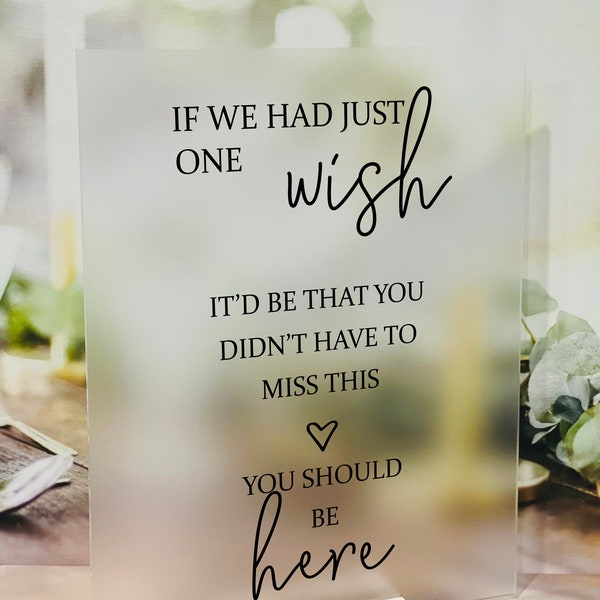 IF WE HAD JUST
ONE wish
IT'D BE THAT YOU
DIDN'T HAVE TO
MISS THIS
YOU SHOULD
BE
here